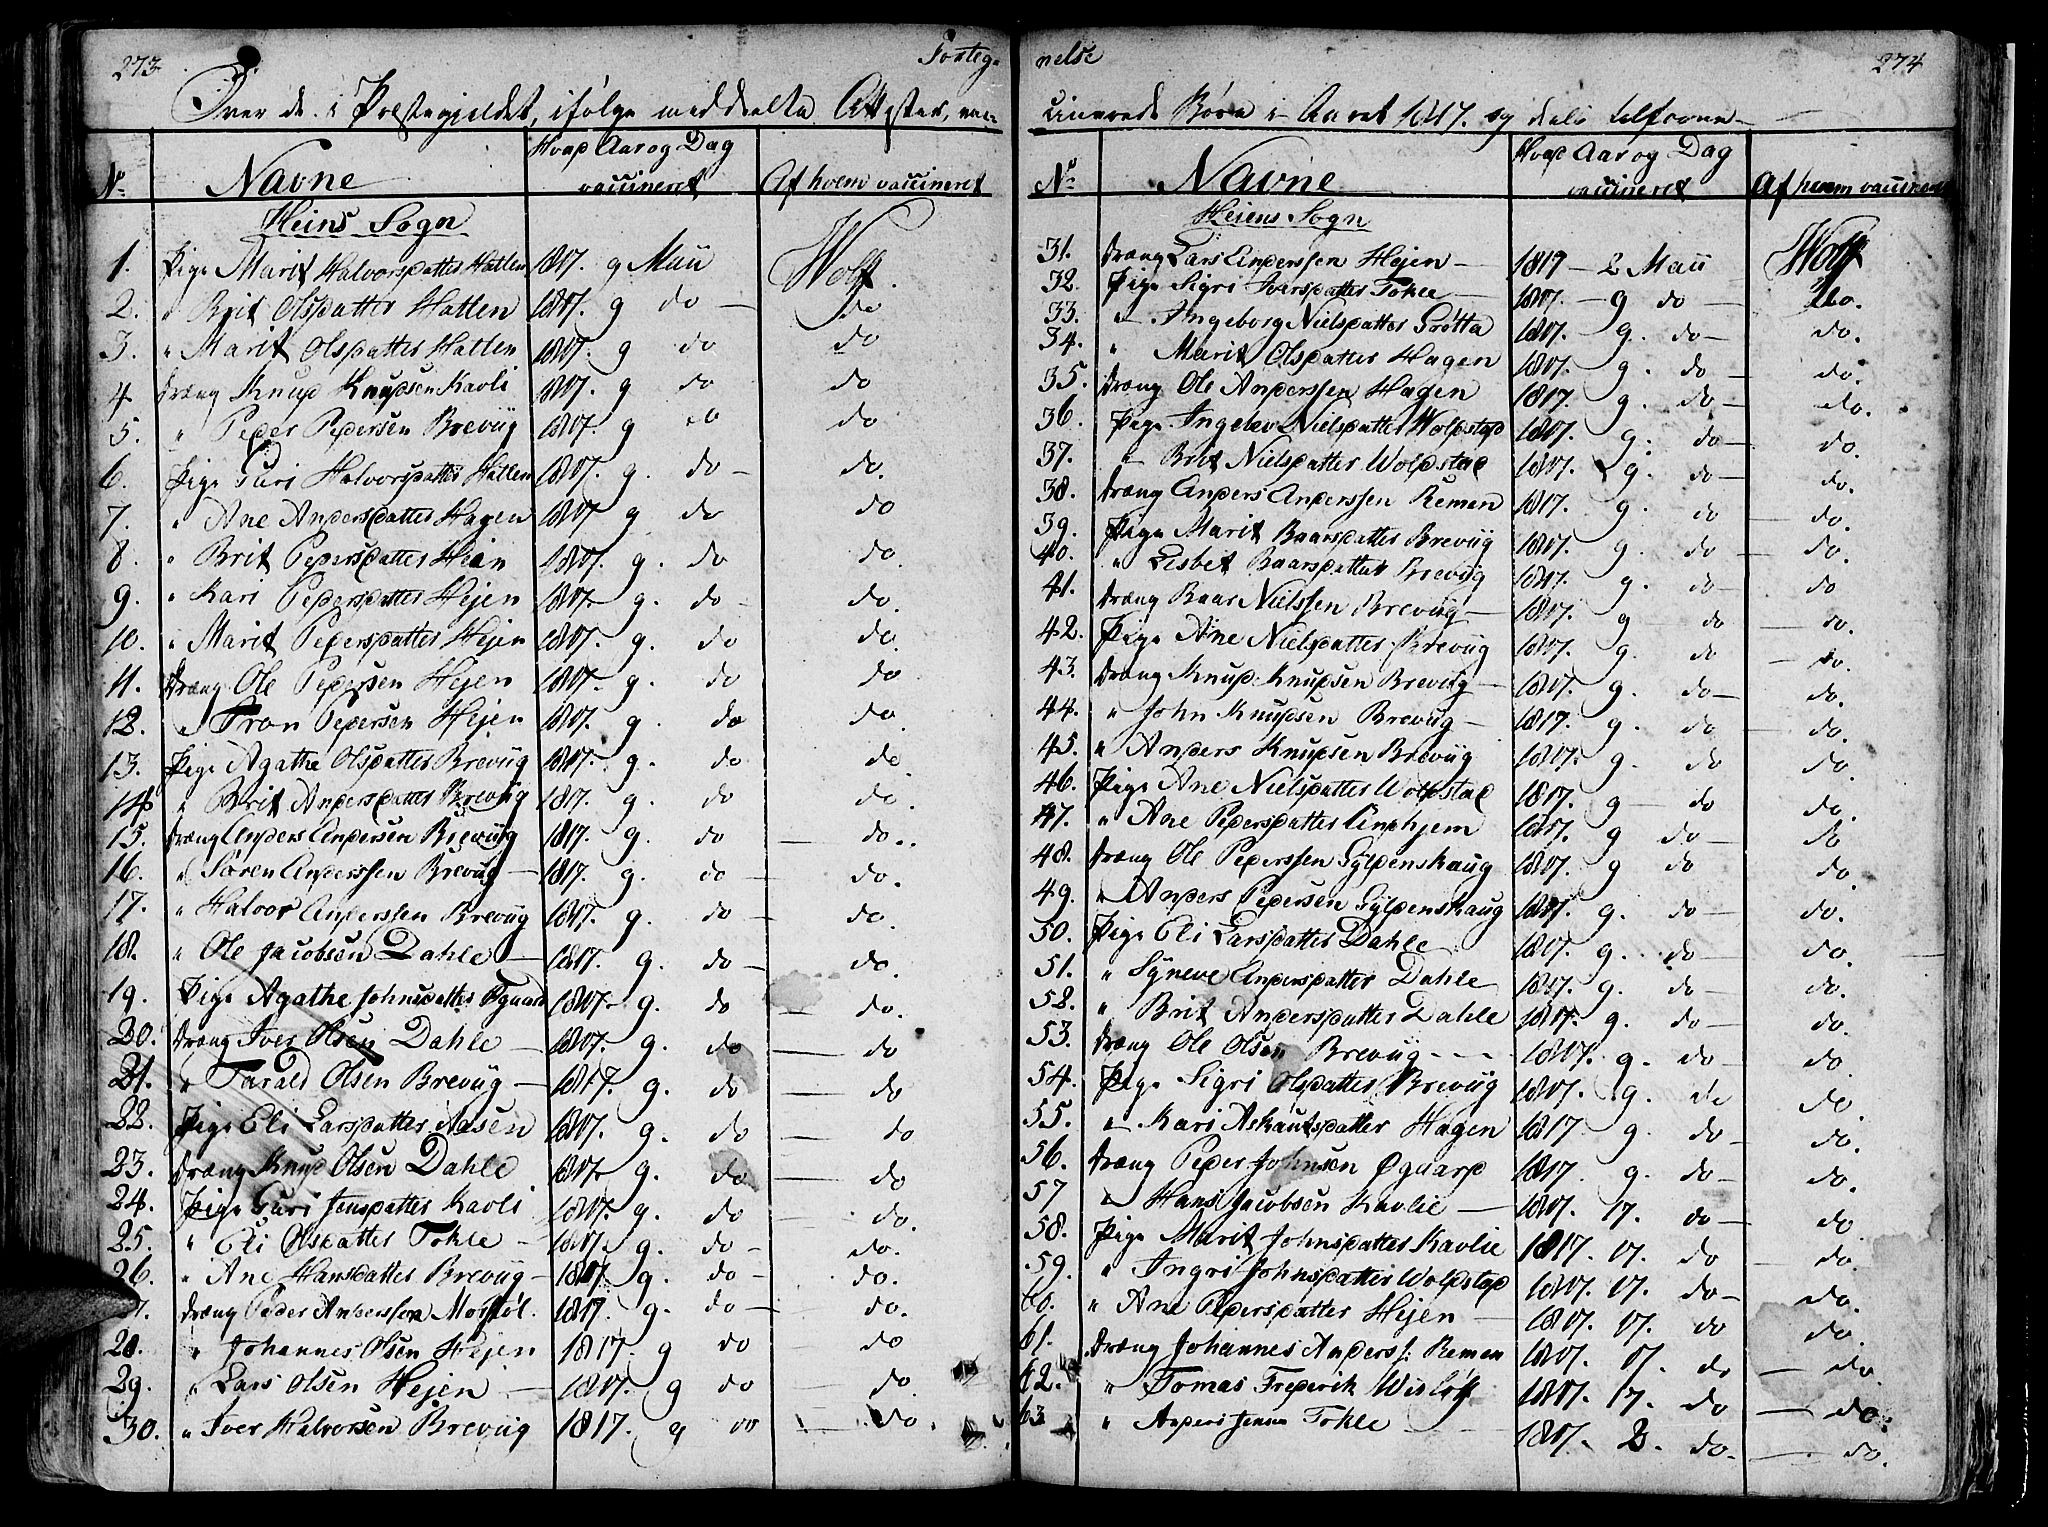 273
Forteg-
Over de i Præstegjeldet, ifølge meddeelte Attester, vac-
No Navne Hvad Aar og Dag vaccineret Af hvem vaccineret
Heins Sogn
1. Pige Marit Halvorsdatter Hatlen 1817. 9 Maii Wolf
2. " Brit Olsdatter Hatlen 1817. 9 do — do
3. " Marit Olsdatter Hatlen 1817. 9 do do
4 Dræng Knud Knudsen Kavli 1817. 9 do do
5. " Peder Pedersen Breviig 1817. 9 do do
6. Pige Guri Halvorsdatter Hatlen 1817. 9. do — do.
7. " Ane Andersdatter Hagen 1817 9 do do
8. " Brit Pedersdatter Heien 1817. 9. do do.
9. " Kari Pedersdatter Hejen 1817. 9. do — do.
10. " Marit Pedersdatter Hejen 1817. 9. do do.
11. Dræng Ole Pedersen Hejen 1817. 9. do do
12. " Tron Pedersen Hejen 1817. 9. do do.
13. Pige Agathe Olsdatter Breviig 1817. 9. do do.
14 " Brit Andersdatter Breviig 1817. 9. do do.
15. Dræng Anders Andersen Breviig 1817. 9. do — do..
16. " Søren Anderssen Breviig — 1817. 9. do — do.
17. " Halvor Anderssen Breviig 1817. 9. do — do.
18. " Ole Jacobsen Dahle — 1817. 9. do — do.
19. Pige Agathe Johnsdatter 1817. 9. do — do.
20. Dræng Iver Olsen Dahle — 1817. 9. do — do
21. " Tarald Olsen Breviig — 1817. 9. do — do
22. Pige Eli Larsdatter Aasen 1817. 9. do — do
23. Dræng Knud Olsen Dahle 1817. 9. do — do
24. Pige Guri Jensdatter Kavli 1817. 9. do — do.
25. " Eli Olsdatter Tokle — 1817. 9. do — do.
26. " Ane Hansdatter Breviig — 1817. 9. do — do.
27. Dræng Peder Anderssen 1817. 9. do — do.
28. " Johannes Olsen Hejen 1817. 9 do do
29. " Lars Olsen Hejen — 1817. 9 do — do.
30. " Iver Halvorsen Breviig 1817. 9 do do.
nelse
274
cinerede Børn i Aaret 1817. og
No Navne Hvad Aar og Dag vaccineret Af hvem vaccineret
Heiens Sogn
31. Dræng Lars Anderssen Hejen — 1817 — 2 Maii Wolf
32. Pige Sigri Iversdatter Tokle — 1817. — 9 do — do.
33. " Ingeborg Nielsdatter Grøtta 1817. 9. do — do.
34. " Marit Olsdatter Hagen 1817. 9. do — do.
35. Dræng Ole Anderssen Hagen 1817. 9. do — do.
36. Pige Ingebor Nielsdatter Woldstad 1817. 9. do — do.
37. " Brit Nielsdatter Woldstad 1817. 9. do — do.
38. Dræng Anders Anderssen Remen 1817. 9. do — do.
39. Pige Marit Baarsdatter Breviig 1817. 9. do — do.
40. " Lisbet Baarsdatter Breviig 1817. 9. do — do
41. Dræng Baar Nielssen Breviig — 1817. 9 do — do.
42. Pige Ane Nielsdatter Breviig 1817. 9. do — do.
43. Dræng Knud Knudsen Breviig — 1817. 9. do — do.
44. " John Knudsen Breviig — 1817. 9. do — do.
45. " Anders Knudsen Breviig 1817. 9. do do.
46. Pige Ane Nielsdatter Woldstad 1817. 9 — do do.
47. " Ane Pedersdatter 1817. 9 do — do
48. Dræng Ole Pederssen Gyldenskaug 1817. 9 do do.
49. " Anders Pedersen Gyldenskaug 1817. 9. do — do.
50. Pige Eli Larsdatter Dahle 1817. 9. do — do.
51. " Syneve Andersdatter Dahle 1817. 9. do — do.
52. " Brit Andersdatter Dahle 1817. 9. do — do.
53. Dræng Ole Olsen Breviig - - - 1817. 9. do — do.
54. Pige Sigri Olsdatter Breviig 1817. 9. do do.
55. " Kari Askautsdatter Hagen 1817 9. do — do.
56. Dræng Peder Johnsen 1817. 9. do — do.
57 " Hans Jacobsen Kavlie — 1817. 17. do — do
58. Pige Marit Johnsdatter Kavlie 1817. 17. do — do.
59. " Ingri Johnsdatter Woldstad 1817. 17. do — do.
60. " Ane Pedersdatter Hejen — 1817. 17. do do.
61. Dræng Johannes Anders: Remen 1817. 17. do — do.
62. " Tomas Frederik 1817. 17. do — do.
63 " Anders Tokle 1817. 2. do — do.